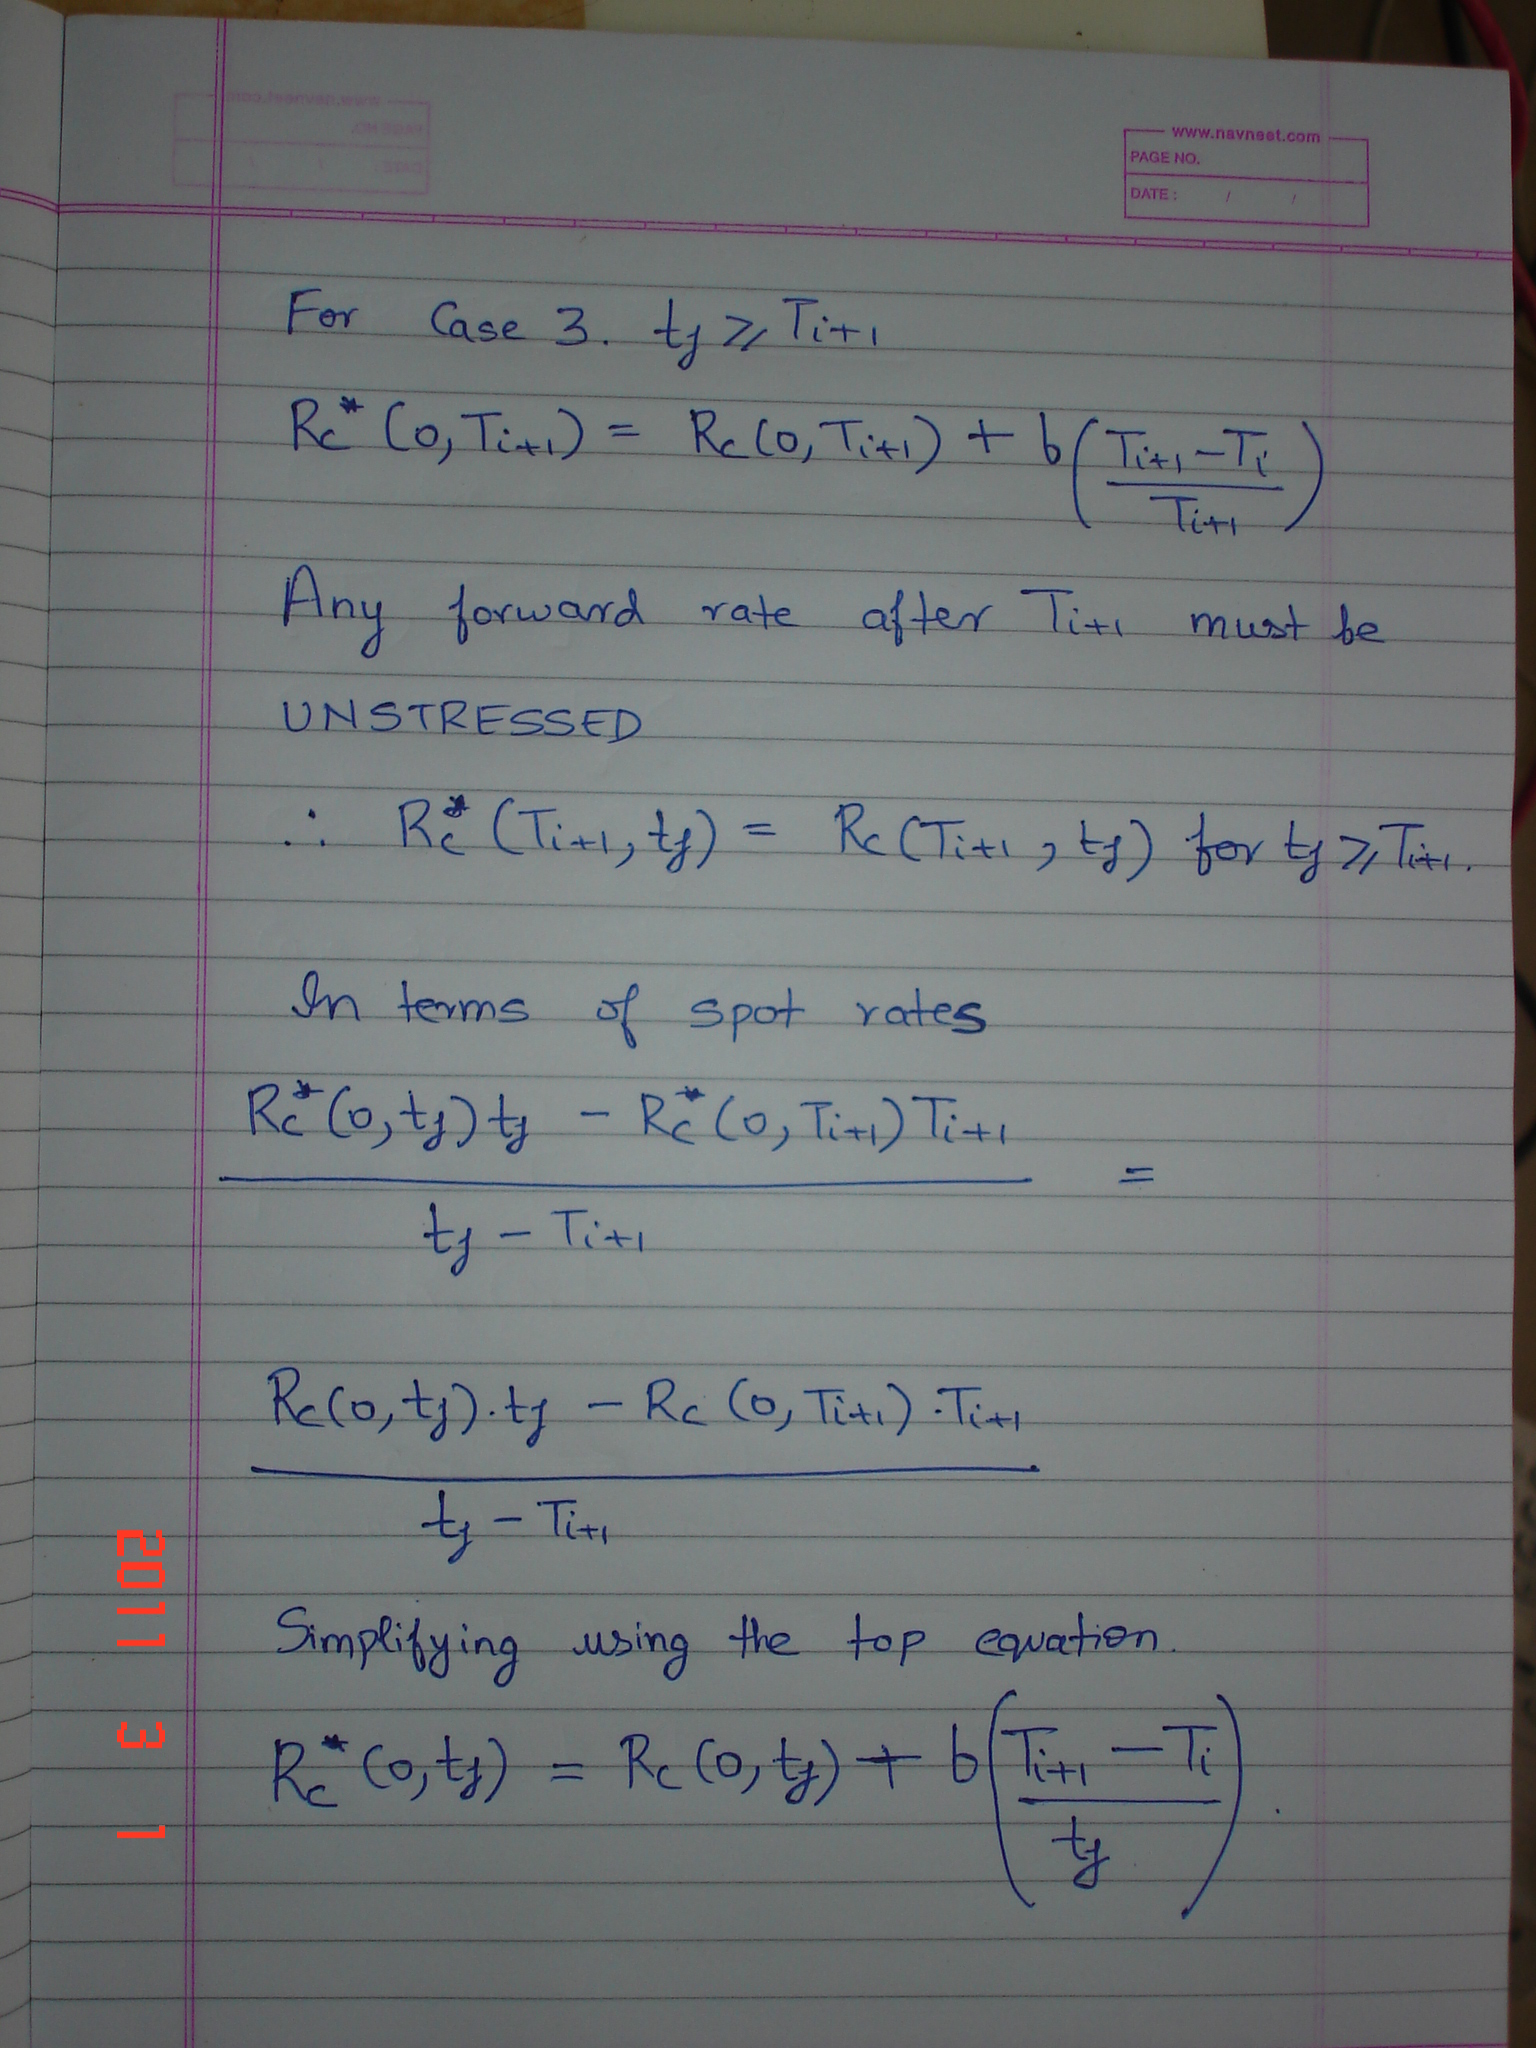 www.navneet.com
PAGE NO.
DATE : / /
For Case 3. tj ⩾ Ti+1
Rc* (0, Ti+1) = Rc (0, Ti+1) + b ( (Ti+1 - Ti) / Ti+1 )
Any forward rate after Ti+1 must be
UNSTRESSED
∴ Rc* (Ti+1, tj) = Rc (Ti+1, tj) for tj ⩾ Ti+1.
In terms of spot rates
Rc* (0, tj) tj - Rc* (0, Ti+1) Ti+1
=
tj - Ti+1
Rc (0, tj) . tj - Rc (0, Ti+1) . Ti+1
tj - Ti+1
Simplifying using the top equation.
Rc* (0, tj) = Rc (0, tj) + b ( (Ti+1 - Ti) / tj ) .
2011 3 1